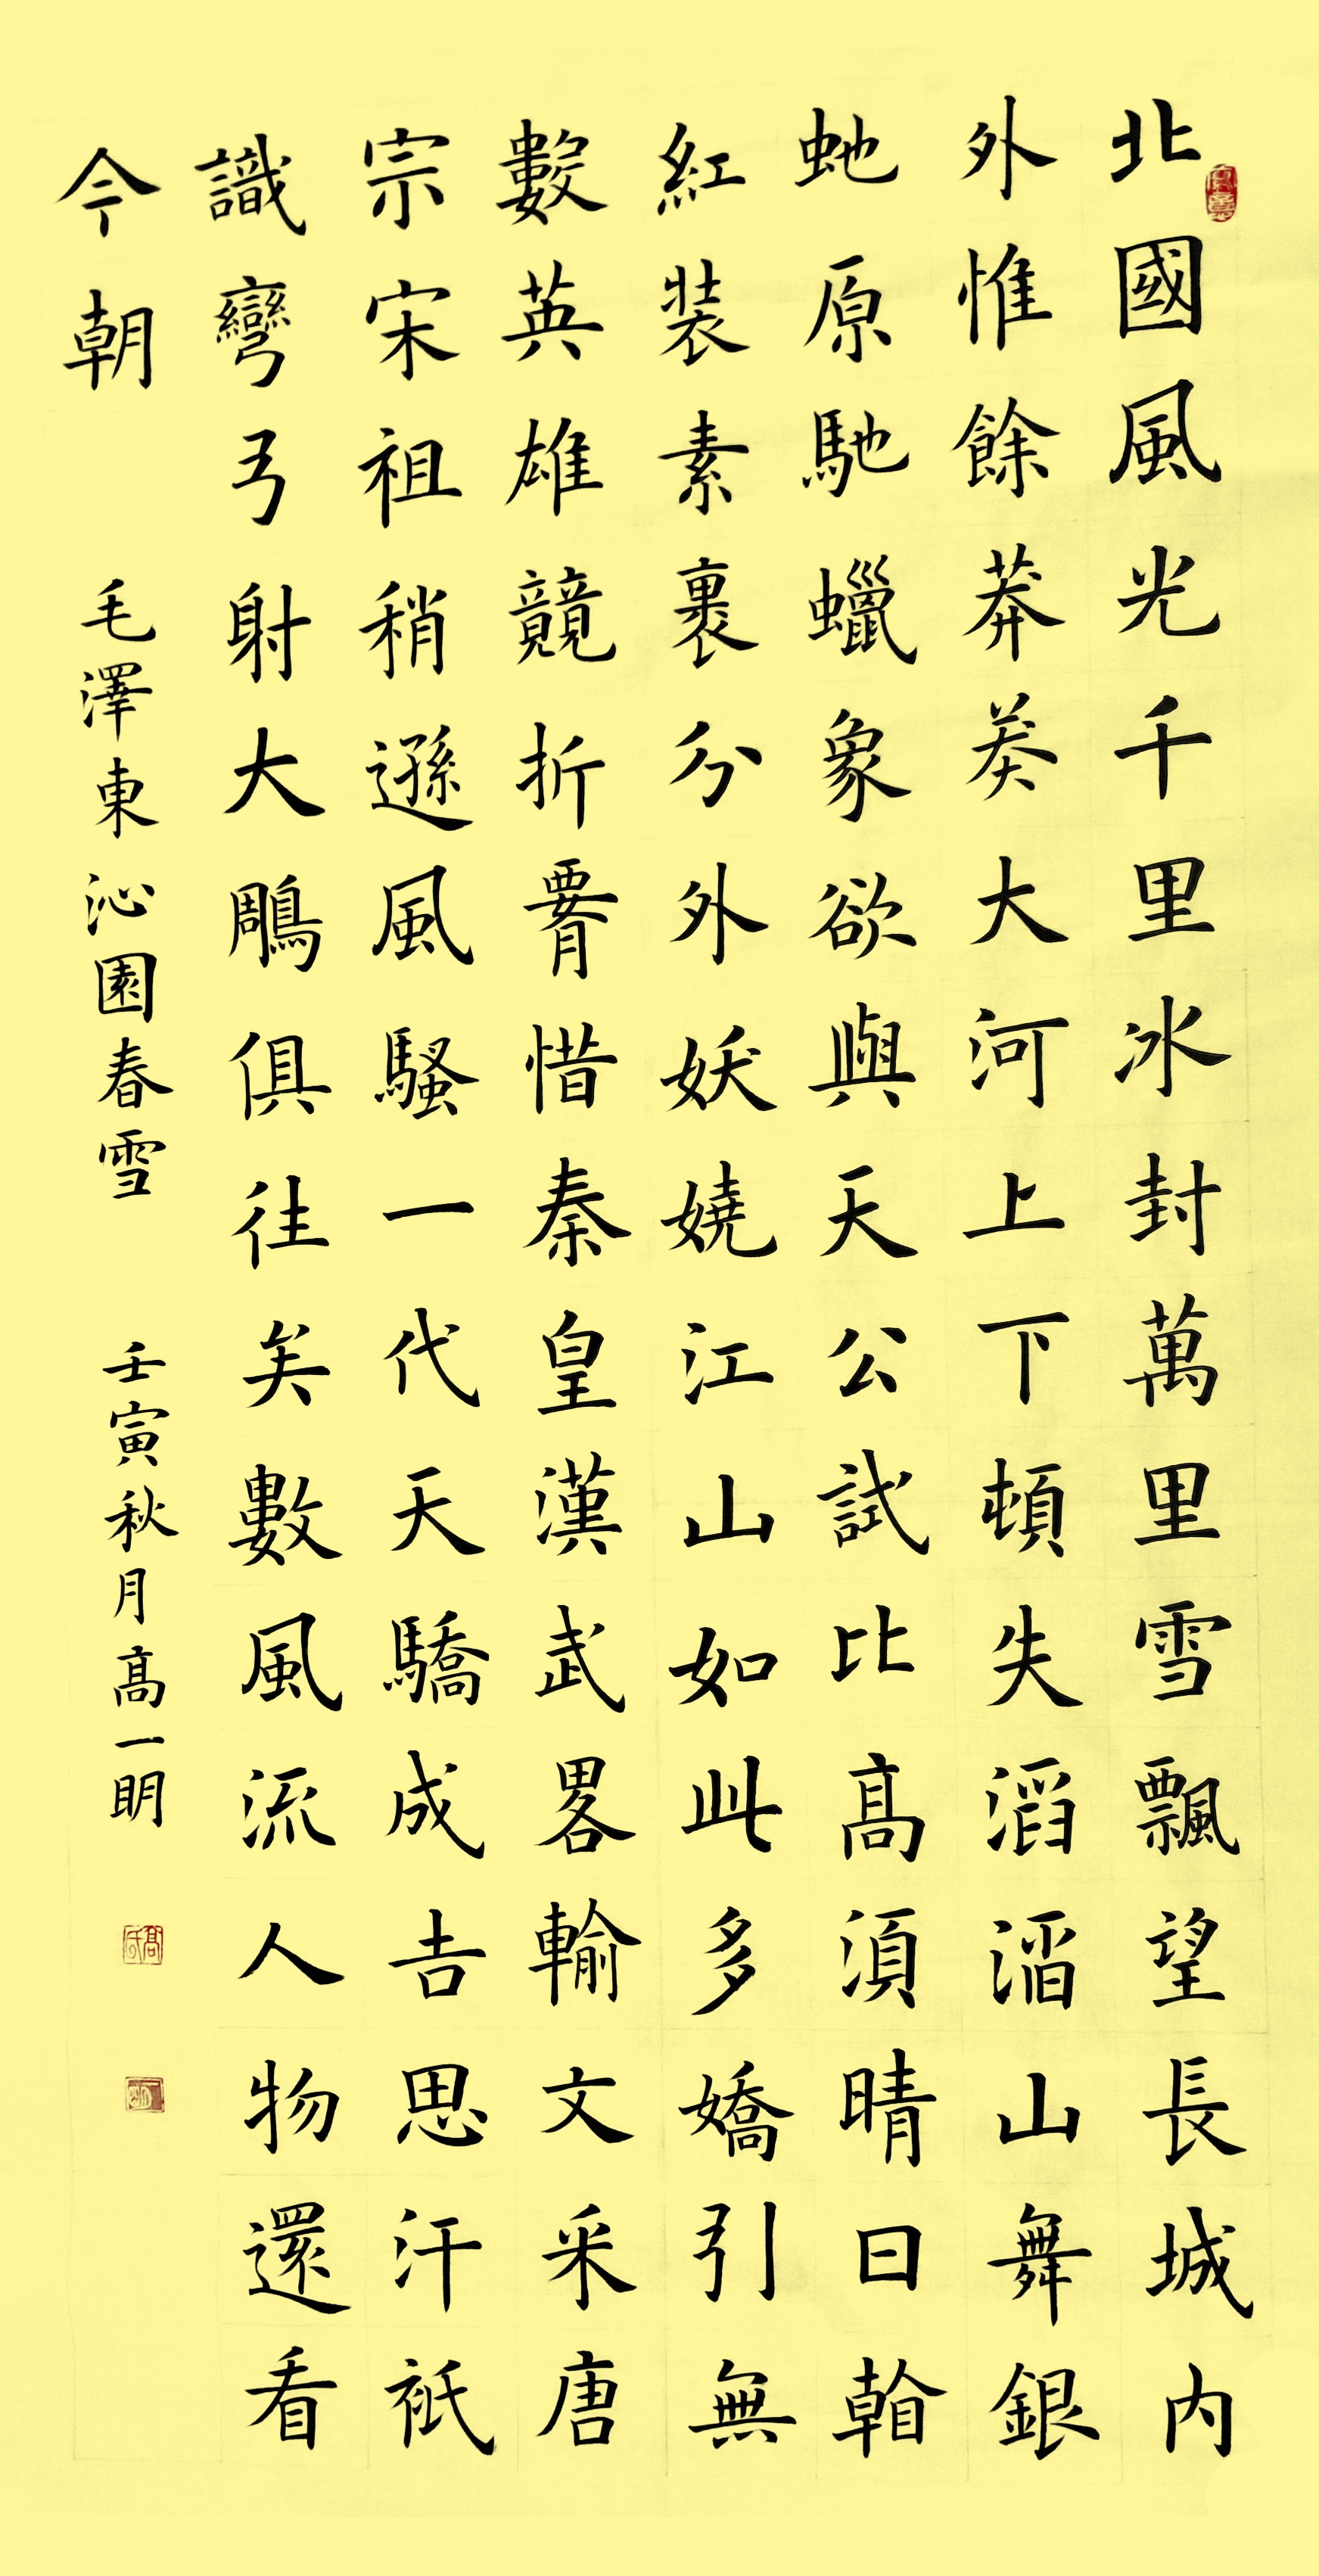 北國風光千里冰封萬里雪飄望長城內
外惟餘莽莽大河上下頓失滔滔山舞銀
虵原馳蠟象欲與天公試比高須晴日看
紅裝素裹分外妖嬈江山如此多嬌引無
數英雄競折腰惜秦皇漢武畧輸文采唐
宗宋祖稍遜風騷一代天驕成吉思汗祇
識彎弓射大鵰俱往矣數風流人物還看
今朝 毛澤東沁園春雪 壬寅秋月高一明
高氏